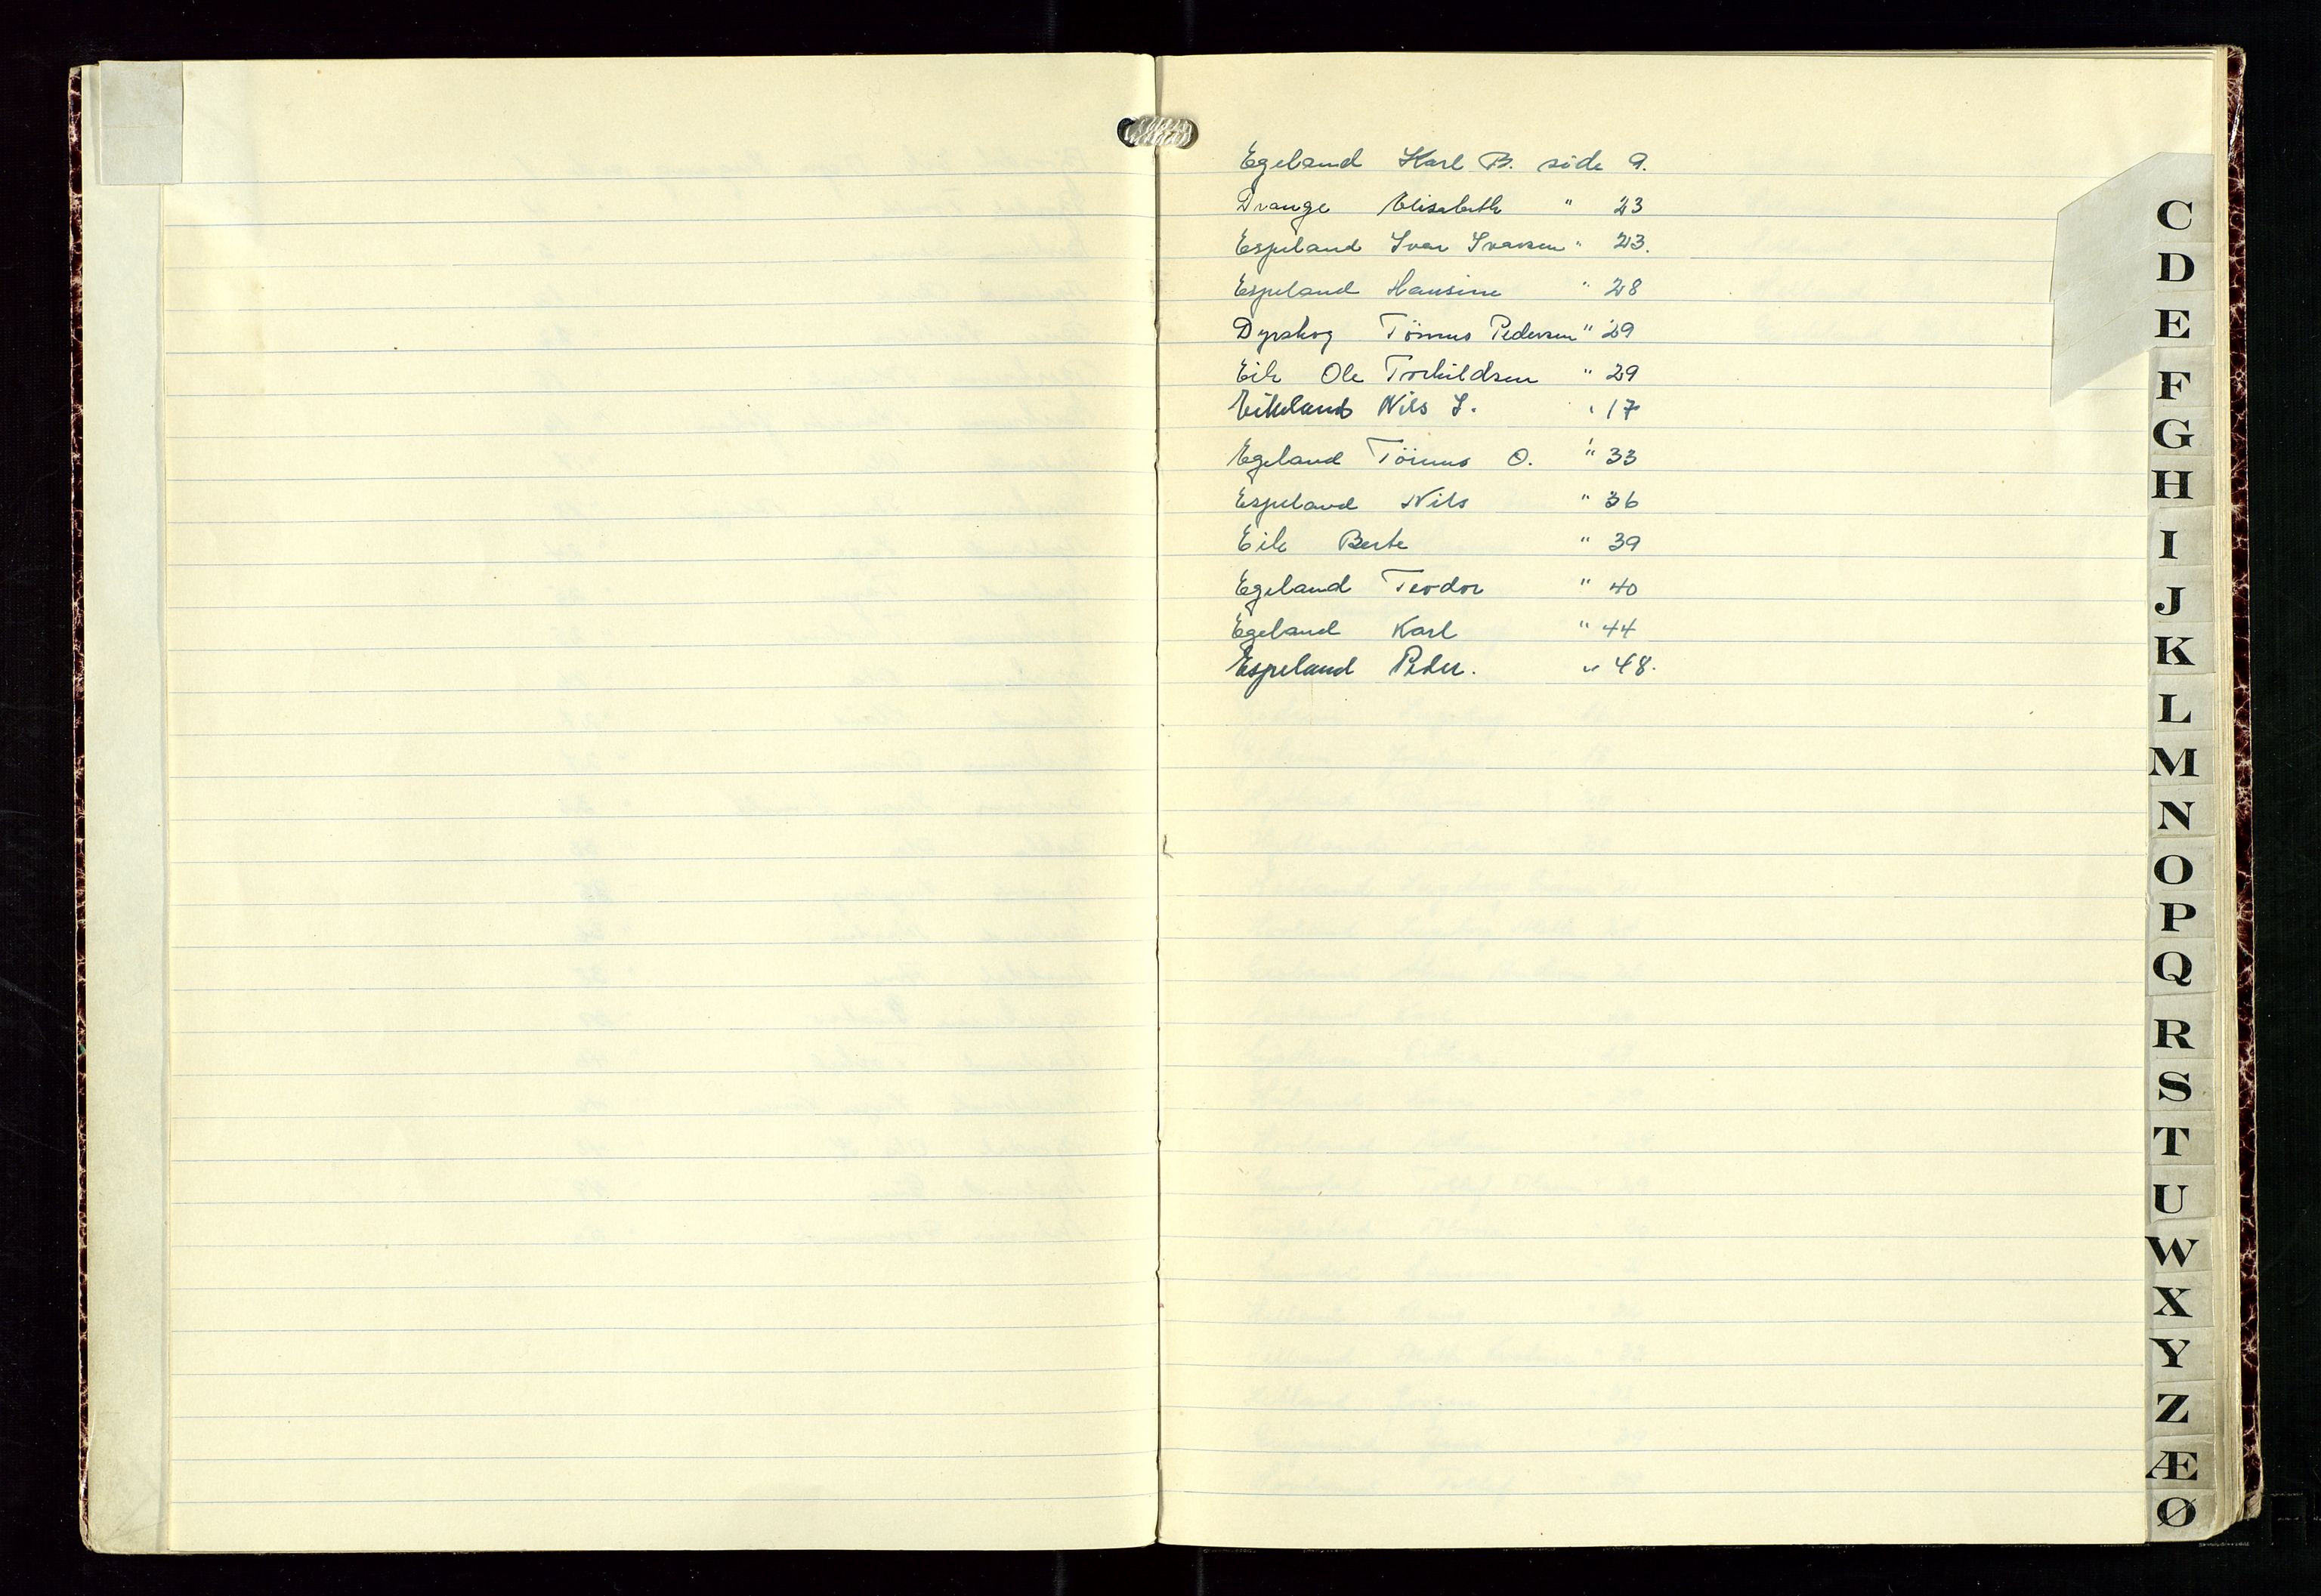 Egeland Karl B. side 9.
Drange Elisabeth " 23
Espeland Ivar Ivarsen " 23.
Espeland Hansine " 28
Dyrskog Tönnes Pedersen " 29
Eik Ole Torkildsen " 29
Eikeland Nils I. " 17
Egeland Tönnes O. " 33
Espeland Nils " 36
Eik Berte " 39
Egeland Teodor " 40
Egeland Karl " 44
Espeland Peder. " 48.
C
D
E
F
G
H
I
J
K
L
M
N
O
P
Q
R
S
T
U
W
X
Y
Z
Æ
Ø